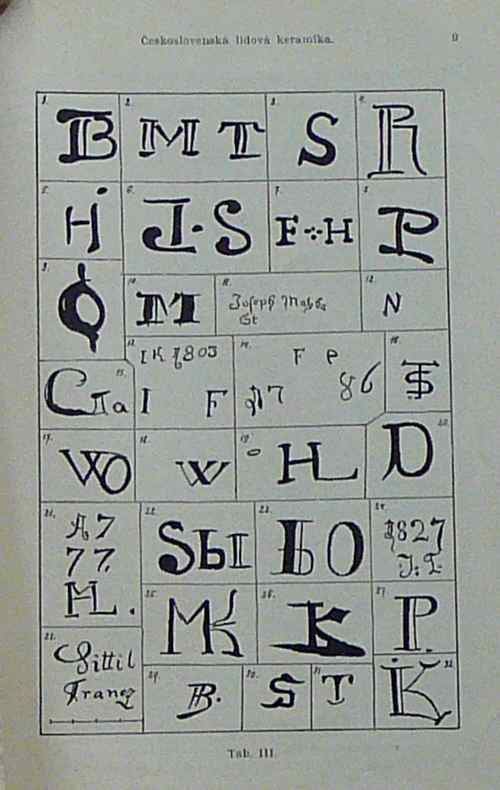 Československá lidová keramika.
9
1.
B
2.
M T
3.
S
4.
R
5.
H
6.
J·S
7.
F H
8.
P
9.
10.
M
11.
Joseph
12.
N
13.
I K 1803
I F
14.
F P
17 86
15.
Спа
16.
17.
WO
18.
W
19.
HL
20.
D
21.
A 7
77.
HL.
22.
SЫ
23.
IO
24.
1827
J. T.
25.
MK
26.
K
27.
P.
28.
Sittil
Franez
29.
B.
30.
S
31.
T
32.
K
Tab. III.